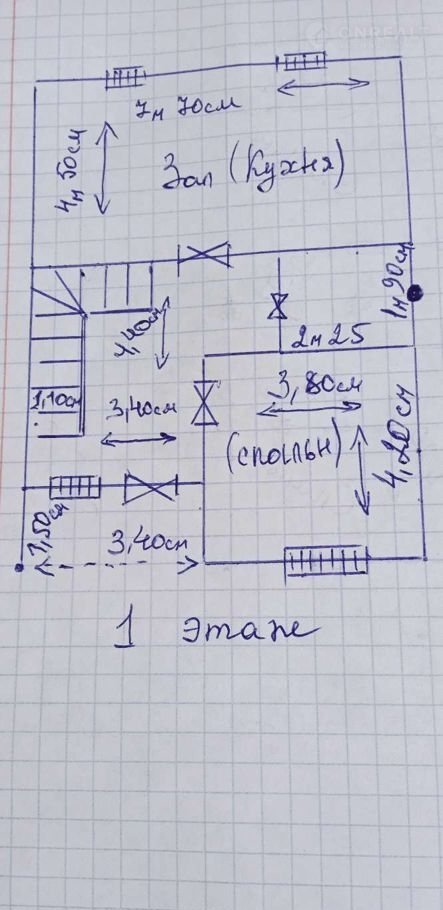 ONREALT
7м 70см
4м 50см
Зал (Кухня)
1м 90см
4,40см
2м 25
1,10см
3,40см
3,80см
(спальн)
4,20см
1,50см
3,40см
1 этаже